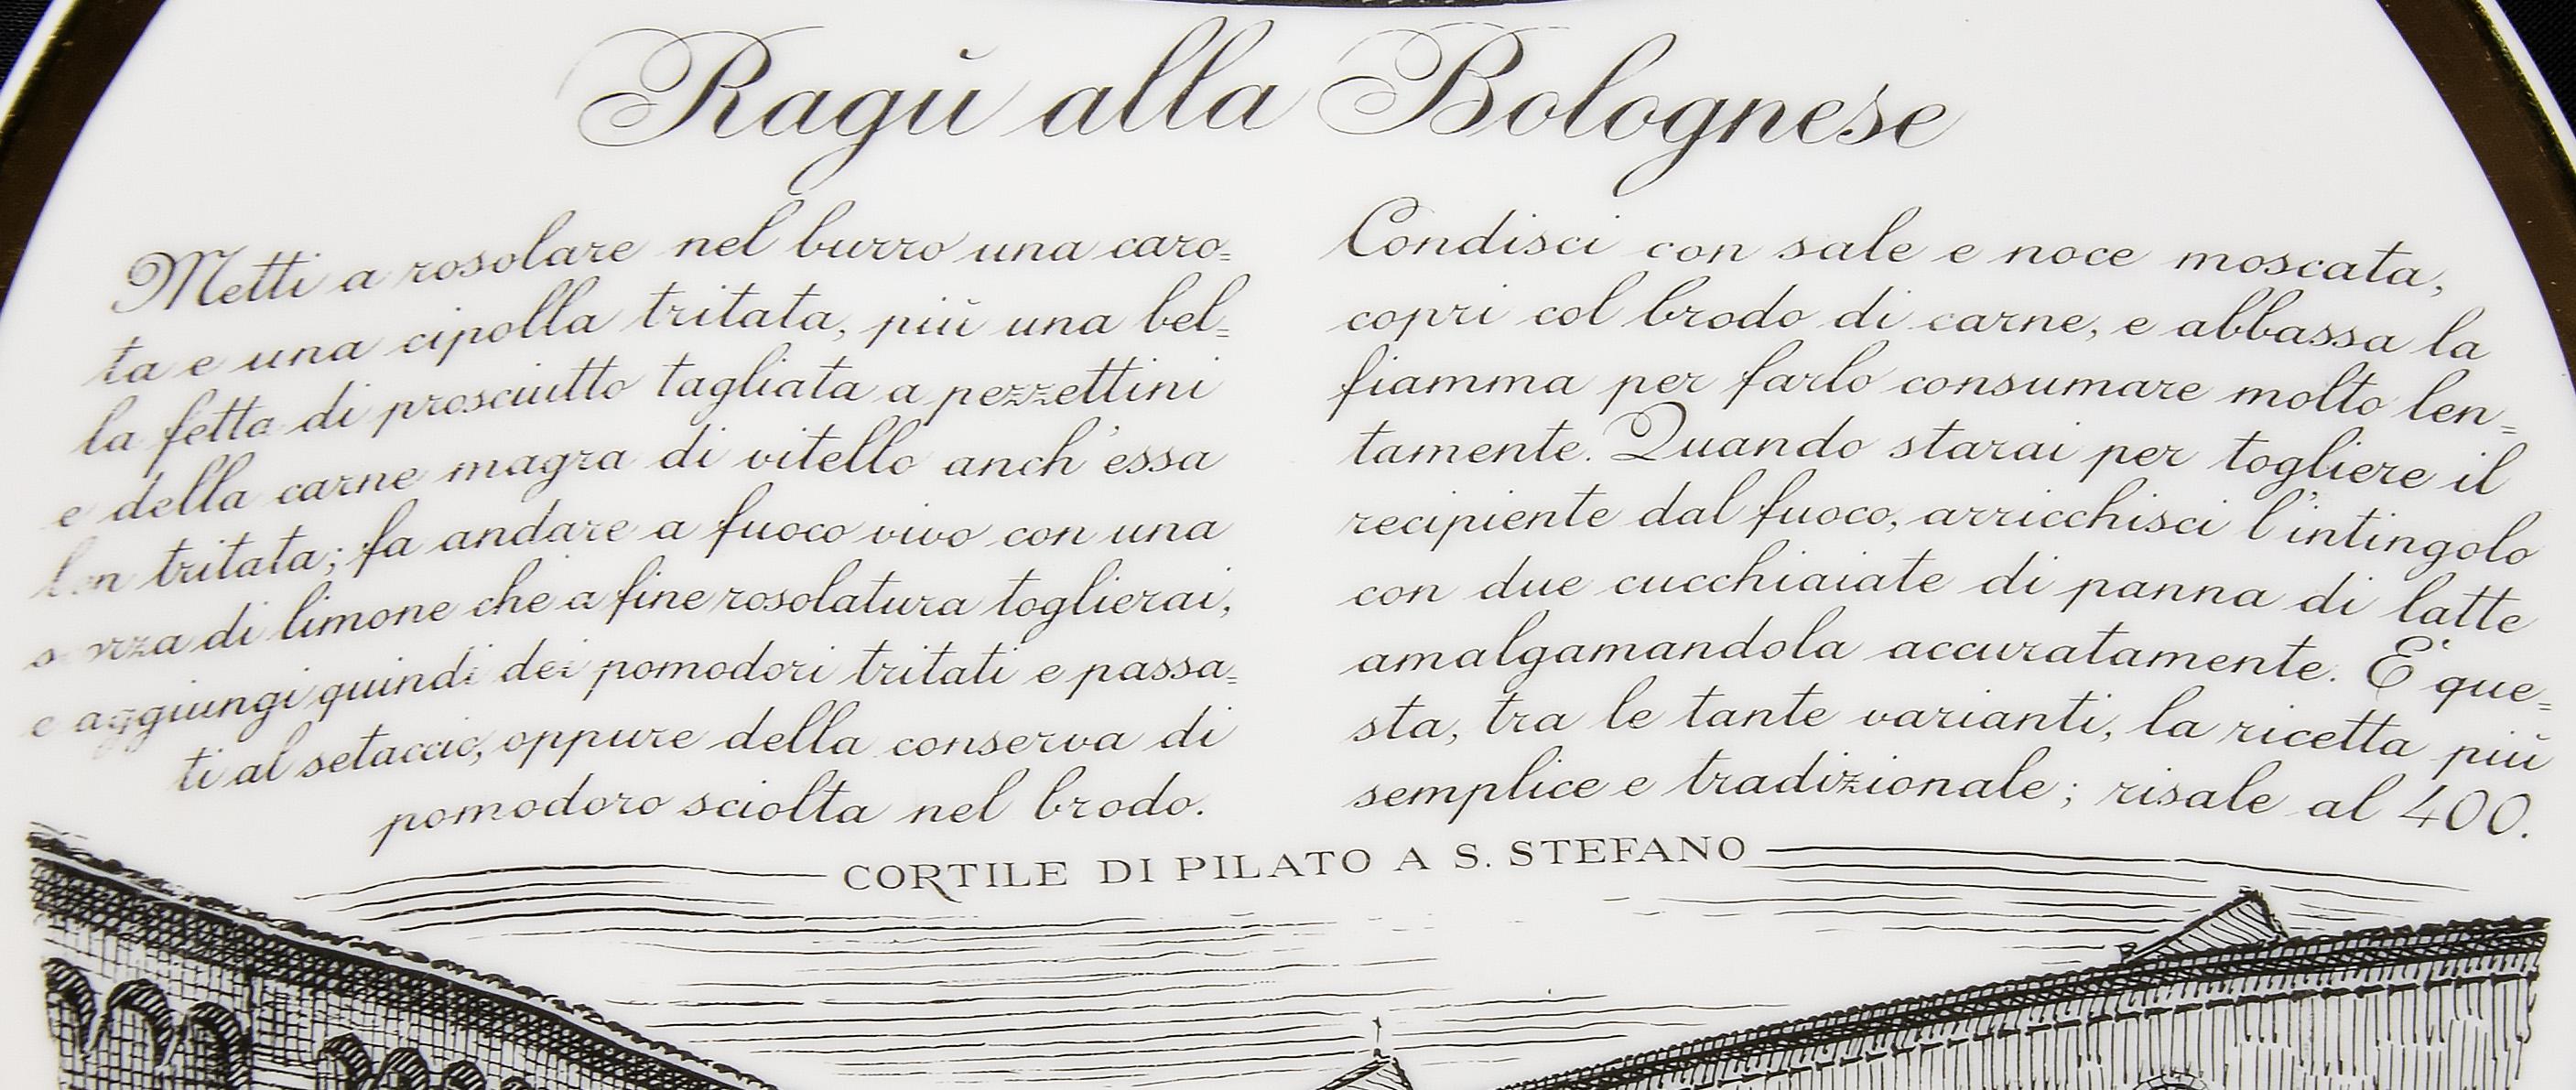 Ragù alla Bolognese
Metti a rosolare nel burro una caro=
ta e una cipolla tritata, più una bel=
la fetta di prosciutto tagliata a pezzettini
e della carne magra di vitello anch'essa
ben tritata; fa andare a fuoco vivo con una
scorza di limone che a fine rosolatura toglierai,
e aggiungi quindi dei pomodori tritati e passa=
ti al setaccio, oppure della conserva di
pomodoro sciolta nel brodo.
Condisci con sale e noce moscata,
copri col brodo di carne, e abbassa la
fiamma per farlo consumare molto len=
tamente. Quando starai per togliere il
recipiente dal fuoco, arricchisci l'intingolo
con due cucchiaiate di panna di latte
amalgamandola accuratamente. E' que=
sta, tra le tante varianti, la ricetta più
semplice e tradizionale; risale al 400.
CORTILE DI PILATO A S. STEFANO